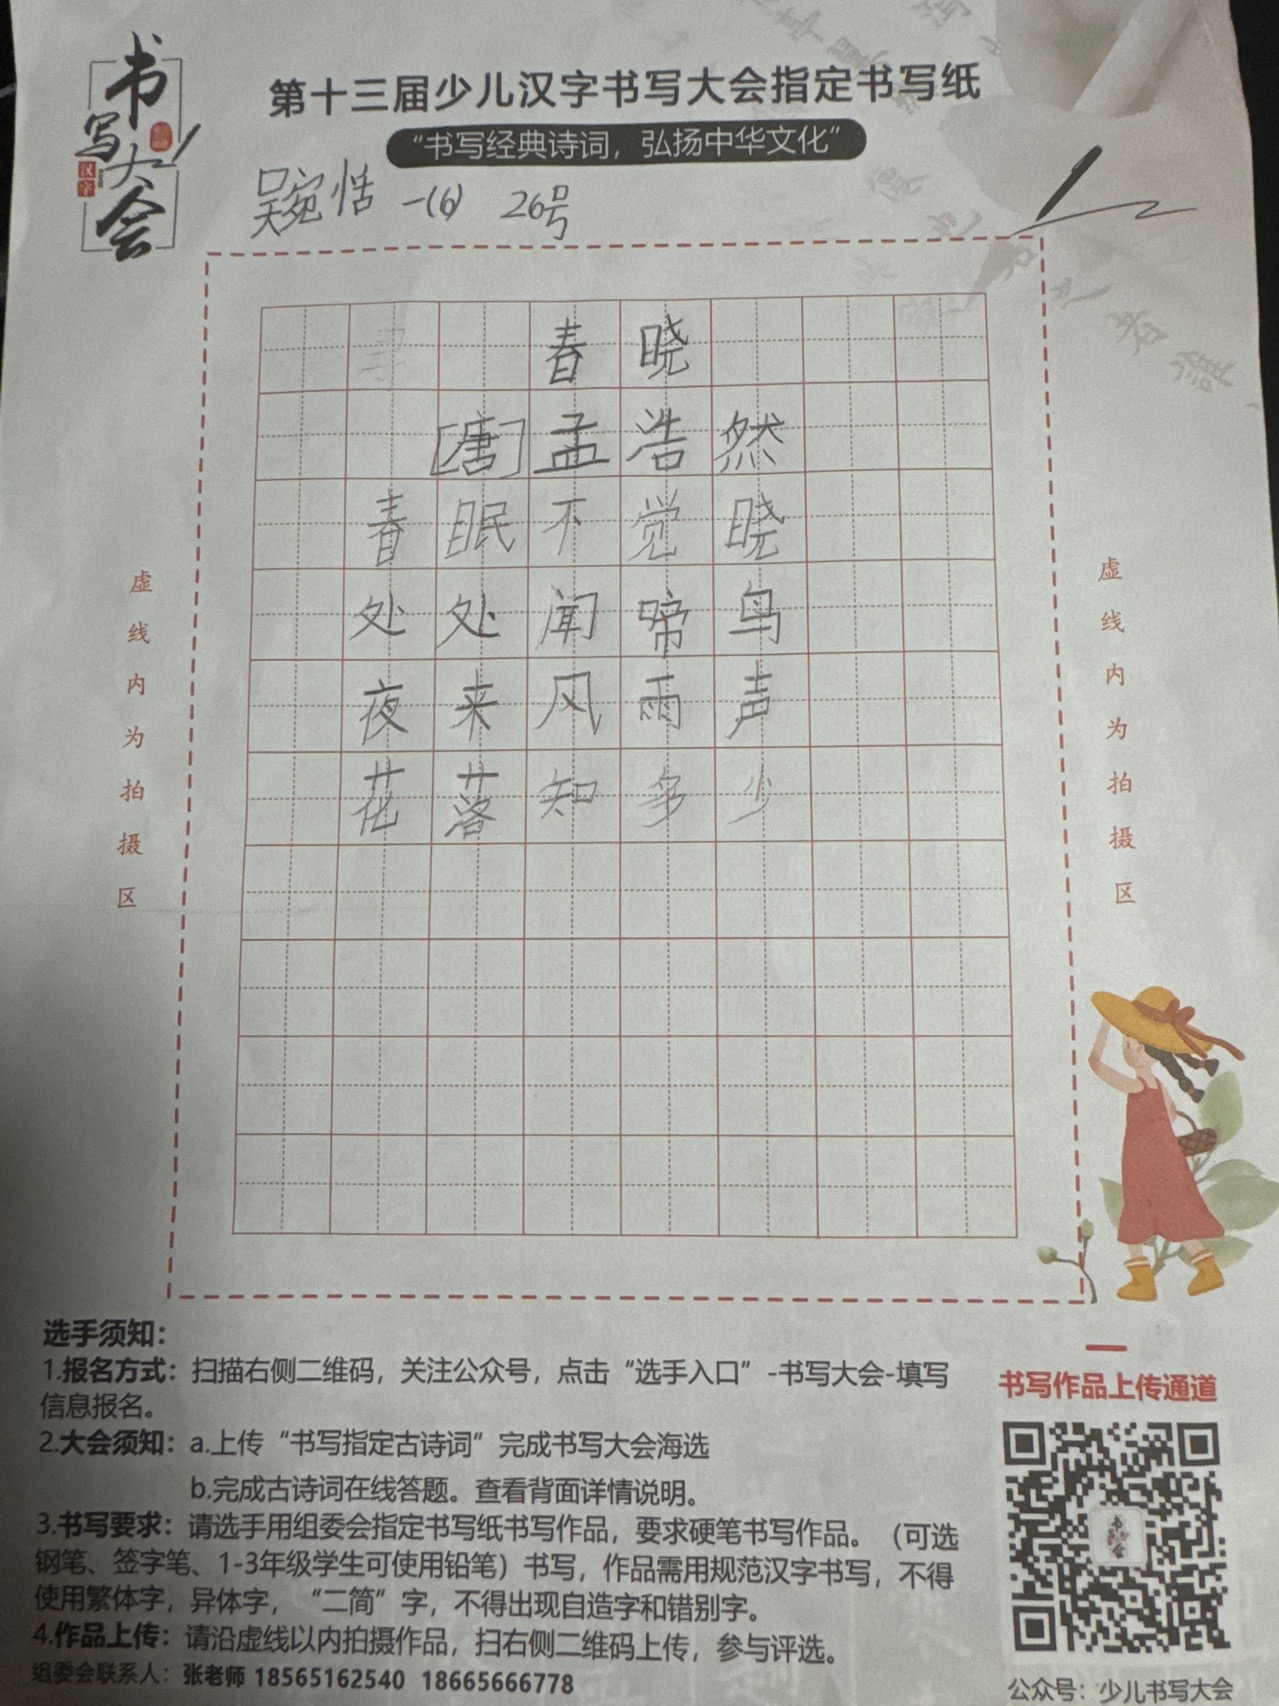 书写大会
汉字
第十三届少儿汉字书写大会指定书写纸
“书写经典诗词，弘扬中华文化”
吴宛恬 一(6) 26号
春晓
[唐]孟浩然
春眠不觉晓
处处闻啼鸟
夜来风雨声
花落知多少
虚线内为拍摄区
虚线内为拍摄区
选手须知：
1.报名方式：扫描右侧二维码，关注公众号，点击“选手入口”-书写大会-填写
信息报名。
2.大会须知：a.上传“书写指定古诗词”完成书写大会海选
b.完成古诗词在线答题。查看背面详情说明。
3.书写要求：请选手用组委会指定书写纸书写作品，要求硬笔书写作品。（可选
钢笔、签字笔、1-3年级学生可使用铅笔）书写，作品需用规范汉字书写，不得
使用繁体字，异体字，“二简”字，不得出现自造字和错别字。
4.作品上传：请沿虚线以内拍摄作品，扫右侧二维码上传，参与评选。
组委会联系人：张老师 18565162540 18665666778
书写作品上传通道
公众号：少儿书写大会